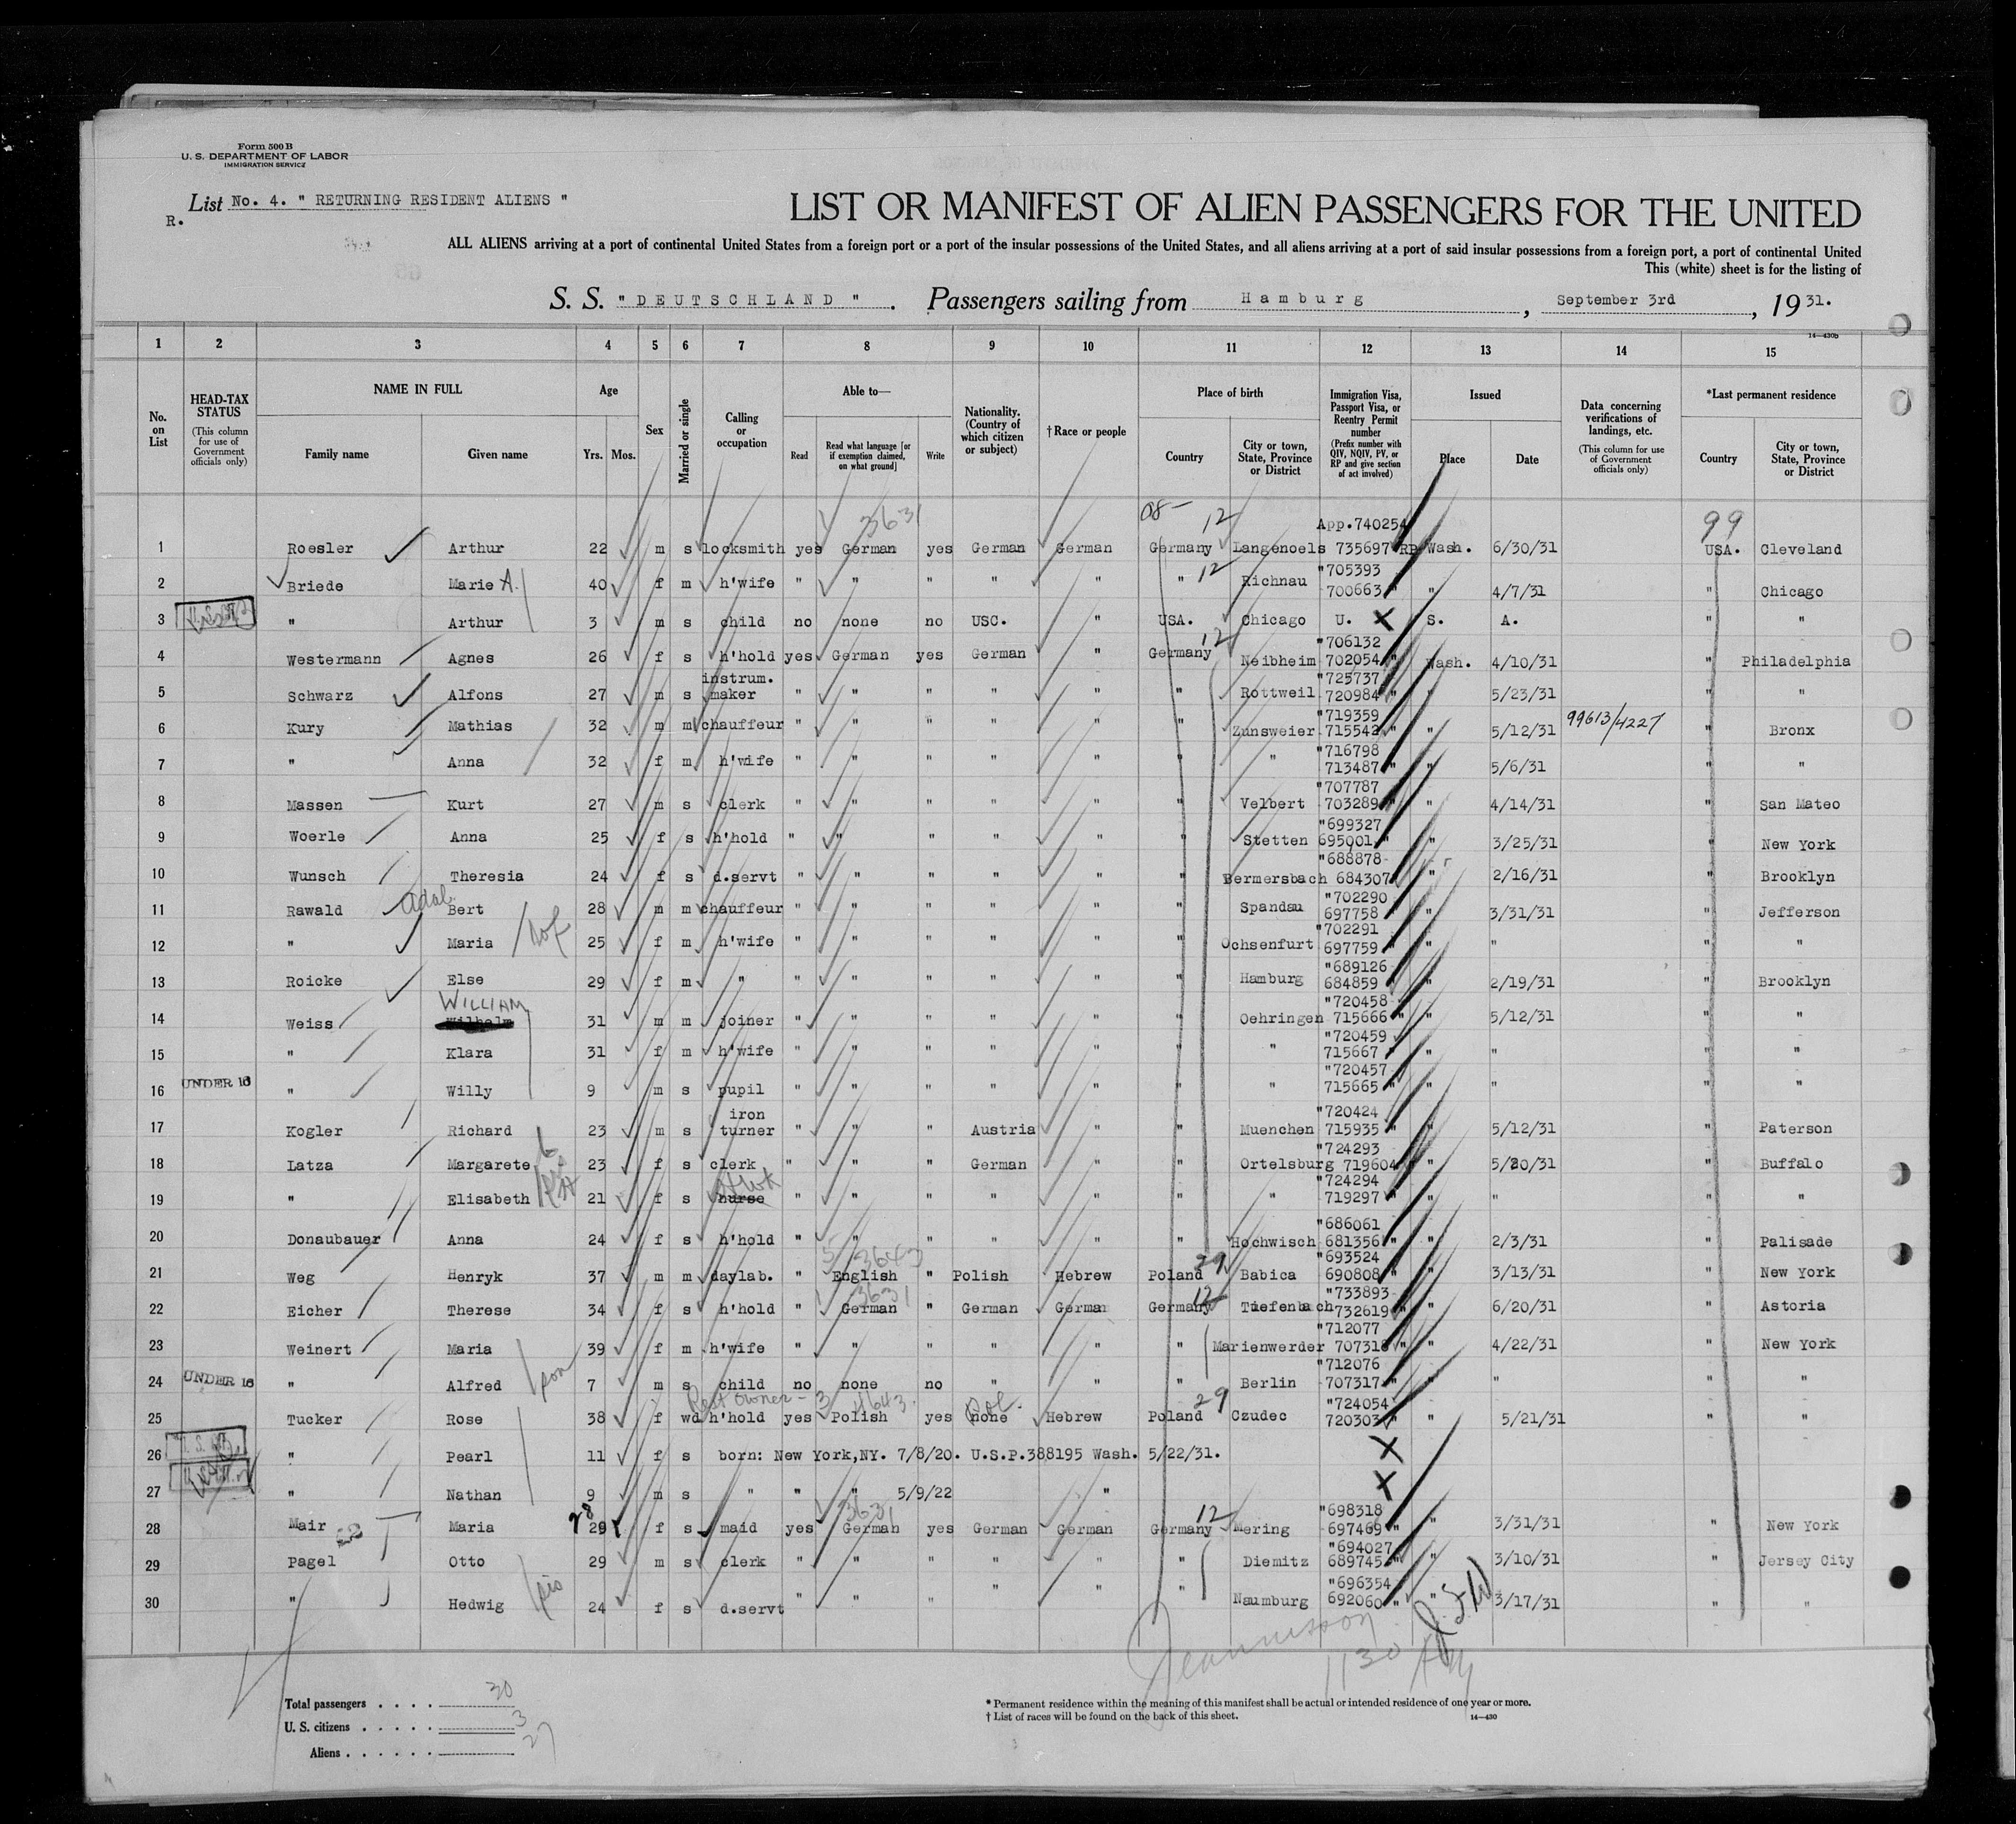 Form 500 B
U. S. DEPARTMENT OF LABOR
IMMIGRATION SERVICE
List No. 4. " RETURNING RESIDENT ALIENS "
R.
LIST OR MANIFEST OF ALIEN PASSENGERS FOR THE UNITED
ALL ALIENS arriving at a port of continental United States from a foreign port or a port of the insular possessions of the United States, and all aliens arriving at a port of said insular possessions from a foreign port, a port of continental United
This (white) sheet is for the listing of
S. S. " DEUTSCHLAND " . Passengers sailing from Hamburg , September 3rd , 19 31.
14—430B
1 2 3 4 5 6 7 8 9 10 11 12 13 14 15
No. on List
HEAD-TAX STATUS (This column for use of Government officials only)
NAME IN FULL Family name Given name
Age Yrs. Mos.
Sex
Married or single
Calling or occupation
Able to— Read Read what language [or if exemption claimed, on what ground] Write
Nationality. (Country of which citizen or subject)
† Race or people
Place of birth Country City or town, State, Province or District
Immigration Visa, Passport Visa, or Reentry Permit number (Prefix number with QIV, NQIV, PV, or RP and give section of act involved)
Issued Place Date
Data concerning verifications of landings, etc. (This column for use of Government officials only)
*Last permanent residence Country City or town, State, Province or District
3631 08- 12 App.740254 99
1 Roesler Arthur 22 m s locksmith yes German yes German German Germany Langenoels 735697 RP Wash. 6/30/31 USA. Cleveland
12 "705393
2 Briede Marie A. 40 f m h'wife " " " " " " Richnau 700663 " " 4/7/31 " Chicago
3 " Arthur 3 m s child no none no USC. " USA. Chicago U. X S. A. " "
12 "706132
4 Westermann Agnes 26 f s h'hold yes German yes German " Germany Neibheim 702054 " Wash. 4/10/31 " Philadelphia
instrum. "725737
5 Schwarz Alfons 27 m s maker " " " " " " Rottweil 720984 " " 5/23/31 " "
"719359
6 Kury Mathias 32 m m chauffeur " " " " " " Zunsweier 715542 " " 5/12/31 99613/4227 " Bronx
"716798
7 " Anna 32 f m h'wife " " " " " " " 713487 " " 5/6/31 " "
"707787
8 Massen Kurt 27 m s clerk " " " " " " Velbert 703289 " " 4/14/31 " San Mateo
"699327
9 Woerle Anna 25 f s h'hold " " " " " " Stetten 695001 " " 3/25/31 " New York
"688878
10 Wunsch Theresia 24 f s d.servt " " " " " " Bermersbach 684307 " 2/16/31 " Brooklyn
"702290
11 Rawald Adal Bert 28 m m chauffeur " " " " " " Spandau 697758 " " 3/31/31 " Jefferson
"702291
12 " Maria 25 f m h'wife " " " " " " Ochsenfurt 697759 " " " " "
"689126
13 Roicke Else 29 f m " " " " " " " Hamburg 684859 " " 2/19/31 " Brooklyn
WILLIAM "720458
14 Weiss Wilhelm 31 m m joiner " " " " " " Oehringen 715666 " " 5/12/31 " "
"720459
15 " Klara 31 f m h'wife " " " " " " " 715667 " " " " "
"720457
16 UNDER 16 " Willy 9 m s pupil " " " " " " " 715665 " " " " "
iron "720424
17 Kogler Richard 23 m s turner " " " Austria " " Muenchen 715935 " " 5/12/31 " Paterson
"724293
18 Latza Margarete 23 f s clerk " " " German " " Ortelsburg 719604 " " 5/20/31 " Buffalo
"724294
19 " Elisabeth 21 f s nurse " " " " " " " 719297 " " " " "
"686061
20 Donaubauer Anna 24 f s h'hold " " " " " " Hochwisch 681356 " " 2/3/31 " Palisade
3643 29 "693524
21 Weg Henryk 37 m m daylab. " English " Polish Hebrew Poland Babica 690808 " " 3/13/31 " New York
3631 12 "733893
22 Eicher Therese 34 f s h'hold " German " German German Germany Tiefenbach 732619 " " 6/20/31 " Astoria
"712077
23 Weinert Maria 39 f m h'wife " " " " " " Marienwerder 707318 " " 4/22/31 " New York
"712076
24 UNDER 16 " Alfred son 7 m s child no none no " " " Berlin 707317 " " " " "
Rest owner- 3 4643 Pol. 29 "724054
25 Tucker Rose 38 f wd h'hold yes Polish yes none Hebrew Poland Czudec 720303 " " 5/21/31 " "
26 " Pearl 11 f s born: New York,NY. 7/8/20. U.S.P.388195 Wash. 5/22/31. X
27 " Nathan 9 m s " " " 5/9/22 " X
28 3631 12 "698318
28 Mair Maria 29 f s maid yes German yes German German Germany Mering 697469 " " 3/31/31 " New York
"694027
29 Pagel Otto 29 m s clerk " " " " " " Diemitz 689745 " " 3/10/31 " Jersey City
"696354
30 " Hedwig sis 24 f s d.servt " " " " " " Naumburg 692060 " " 3/17/31 " "
1130
Total passengers . . . . 30
U. S. citizens . . . . . 3
Aliens . . . . . . 27
* Permanent residence within the meaning of this manifest shall be actual or intended residence of one year or more.
† List of races will be found on the back of this sheet. 14—430